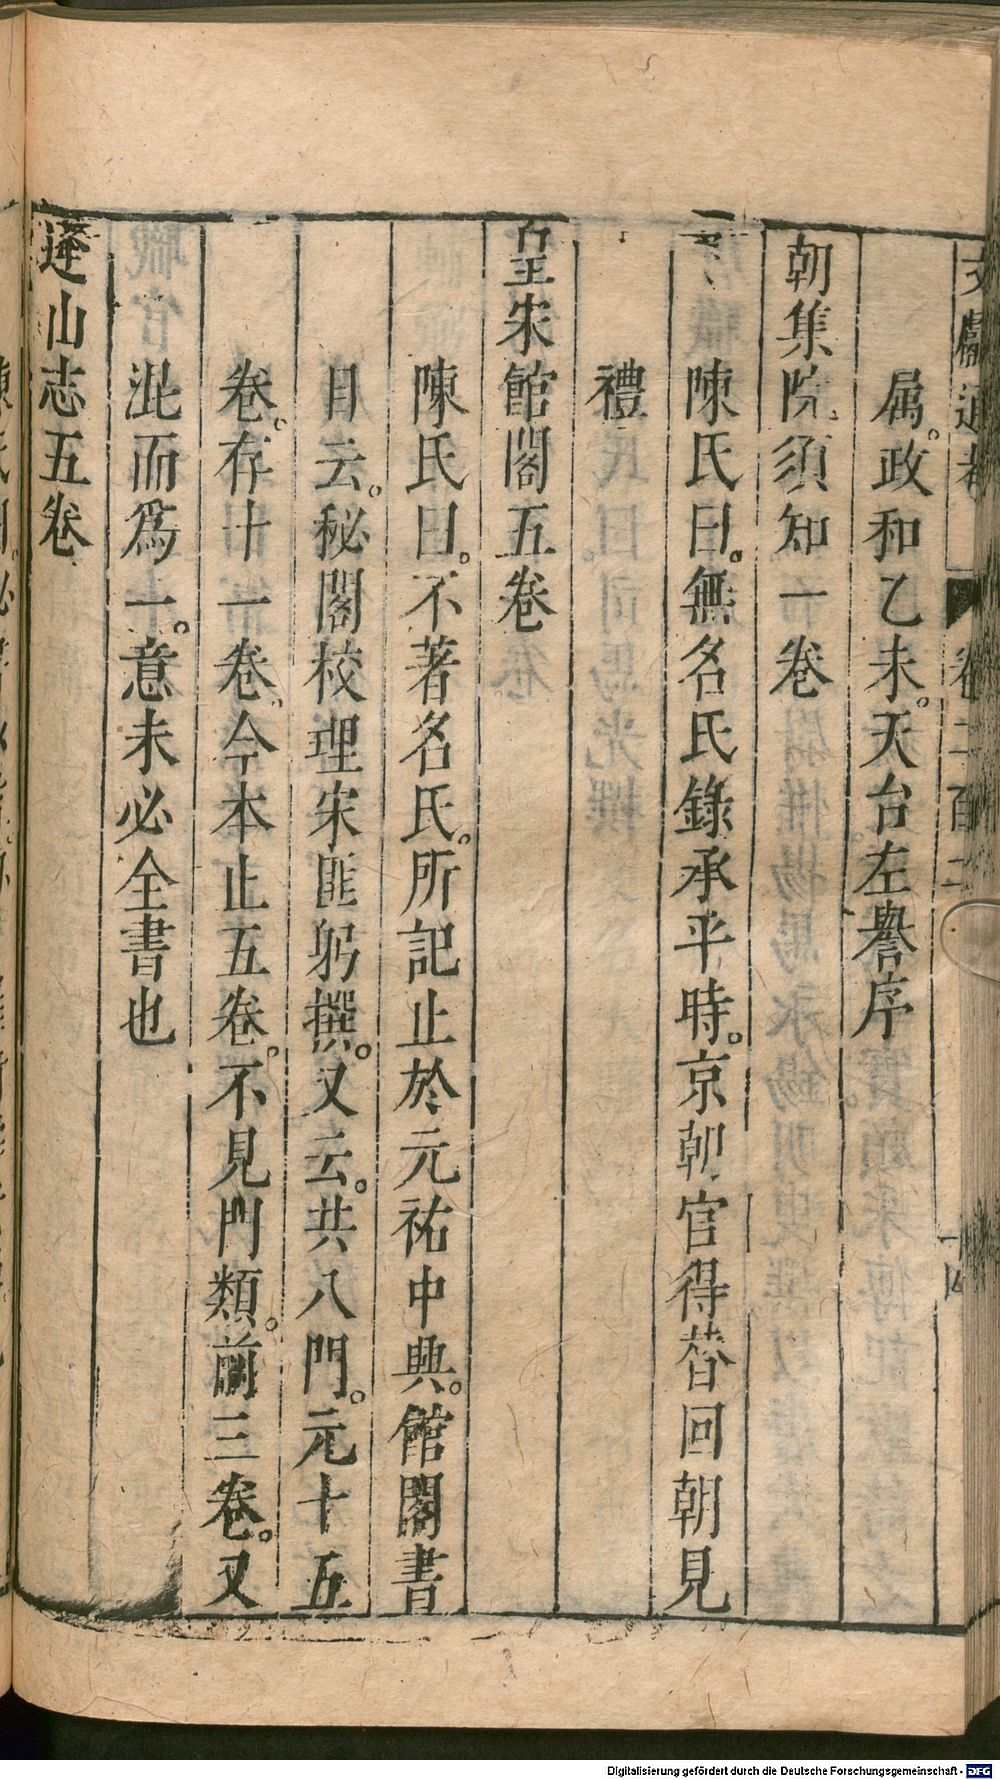 文獻通考 卷二百二 十四
属。政和乙未。天台左譽序
朝集院須知一卷
陳氏曰。無名氏錄承平時。京朝官得替回朝見
禮
皇宋館閣五卷
陳氏曰。不著名氏。所記止於元祐中興。館閣書
目云。秘閣校理宋匪躬撰。又云。共八門。元十五
卷。存十一卷。今本止五卷。不見門類。前三卷。又
混而爲一。意未必全書也
蓬山志五卷
Digitalisierung gefördert durch die Deutsche Forschungsgemeinschaft - DFG